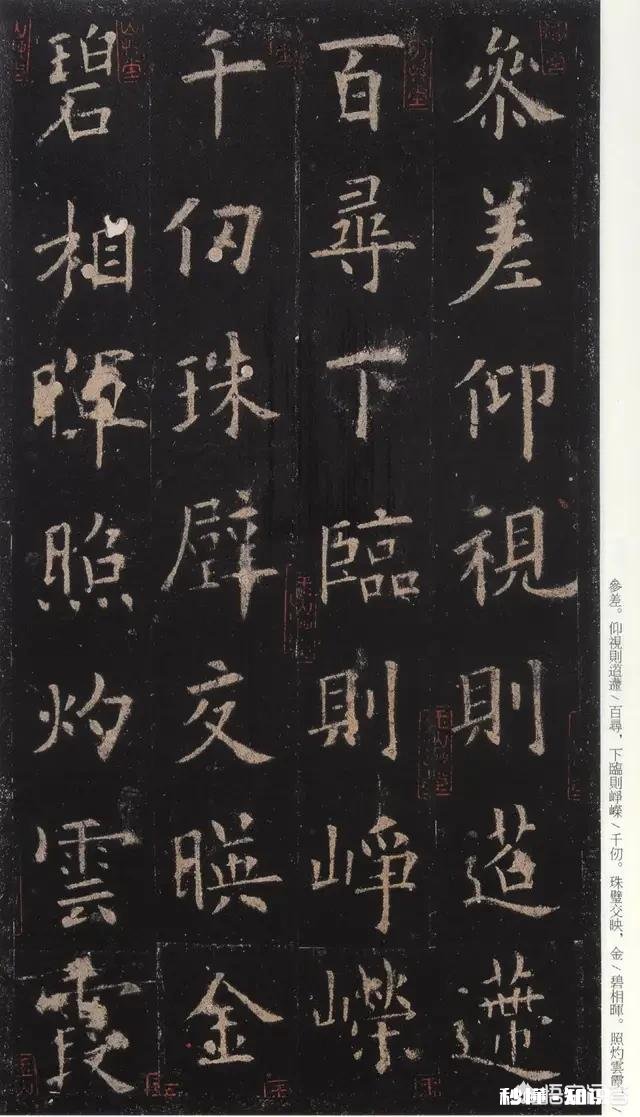 叅差仰視則迢遰
百尋下臨則崢嶸
千仞珠璧交暎金
碧相暉照灼雲霞
參差。仰視則迢遰/百尋，下臨則崢嶸/千仞。珠璧交映，金/碧相暉。照灼雲霞，/